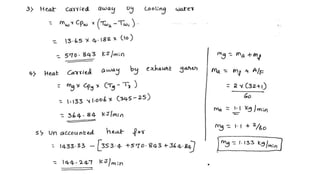 3) Heat Carried away by Cooling water
= mw × Cpw × (Tw2 - Tw1)
= 13.65 × 4.182 × (10)
= 570.843 kJ/min
4) Heat Carried away by exhaust gases
= mg × Cpg × (Tg - Ta)
= 1.133 × 1.006 × (345-25)
= 364.84 kJ/min
5) Un accounted heat for
= 1433.33 - [353.4 + 570.843 + 364.84]
= 144.247 kJ/min
mg = ma + mf
ma = mf × A/F
= 2 × (32+1)
60
ma = 1.1 kg/min
mg = 1.1 + 2/60
mg = 1.133 kg/min